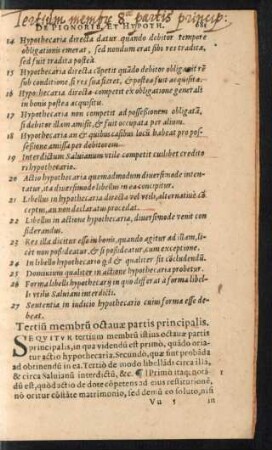 Tertium membrũ 8æ partis princip:
DE PIGNORIB. ET HYPOTH.
14 Hypothecaria directa datur quando debitor tempore
obligationis emerat, sed nondum erat sibi res tradita,
sed fuit tradita postea.
15 Hypothecaria directa cõpetit quãdo debitor obligauit rẽ
sub conditione si res sua fieret, & postea fuit acquisita.
16 Hypothecaria directa competit ex obligatione generali
in bonis postea acquisitis.
17 Hypothecaria non competit ad possessionem obligatã,
si debitor illam amisit, & fuit occupata per alium.
18 Hypothecaria an & quibus casibus locũ habeat pro pos-
sessione amissa per debitorem.
19 Interdictum Saluianum vtile competit cuilibet credito
ri hypothecario.
20 Actio hypothecaria quemadmodum diuersimode inten-
tatur, ita diuersimode libellus in ea concipitur.
21 Libellus in hypothecaria directa vel vtili, alternatiuè cõ
ceptus, anven declarandus procedat.
22 Libellus in actione hypothecaria, diuersimode venit con
siderandus.
23 Res illa dicitur esse in bonis, quando agitur ad illam, li-
cèt non possideatur, & si possideatur, cum exceptione.
24 In libello hypothecario qd & qualiter sit cõcludendũ.
25 Dominium qualiter in actione hypothecaria probetur.
26 Forma libelli hypothecarij in quo differat à forma libel-
li vtilis Saluiani interdicti.
27 Sententia in iudicio hypothecario cuius formæ esse de-
beat.
Tertiũ membrũ octauæ partis principalis.
SEQVITVR tertium membrũ istius octauæ partis
principalis, in qua videndũ est primò, quãdo oria-
tur actio hypothecaria. Secundò, quæ sint probãda
ad obtinendũ in ea. Tertiò de modo libellãdi circa illã,
& circa Saluianũ interdictũ, &c. ¶ Primò itaq; notã- 1
dũ est, quòd actio de dote cõpetens ad eius restitutionẽ,
nõ oritur cõstãte matrimonio, sed demũ eo soluto, nisi
Vu 5 in